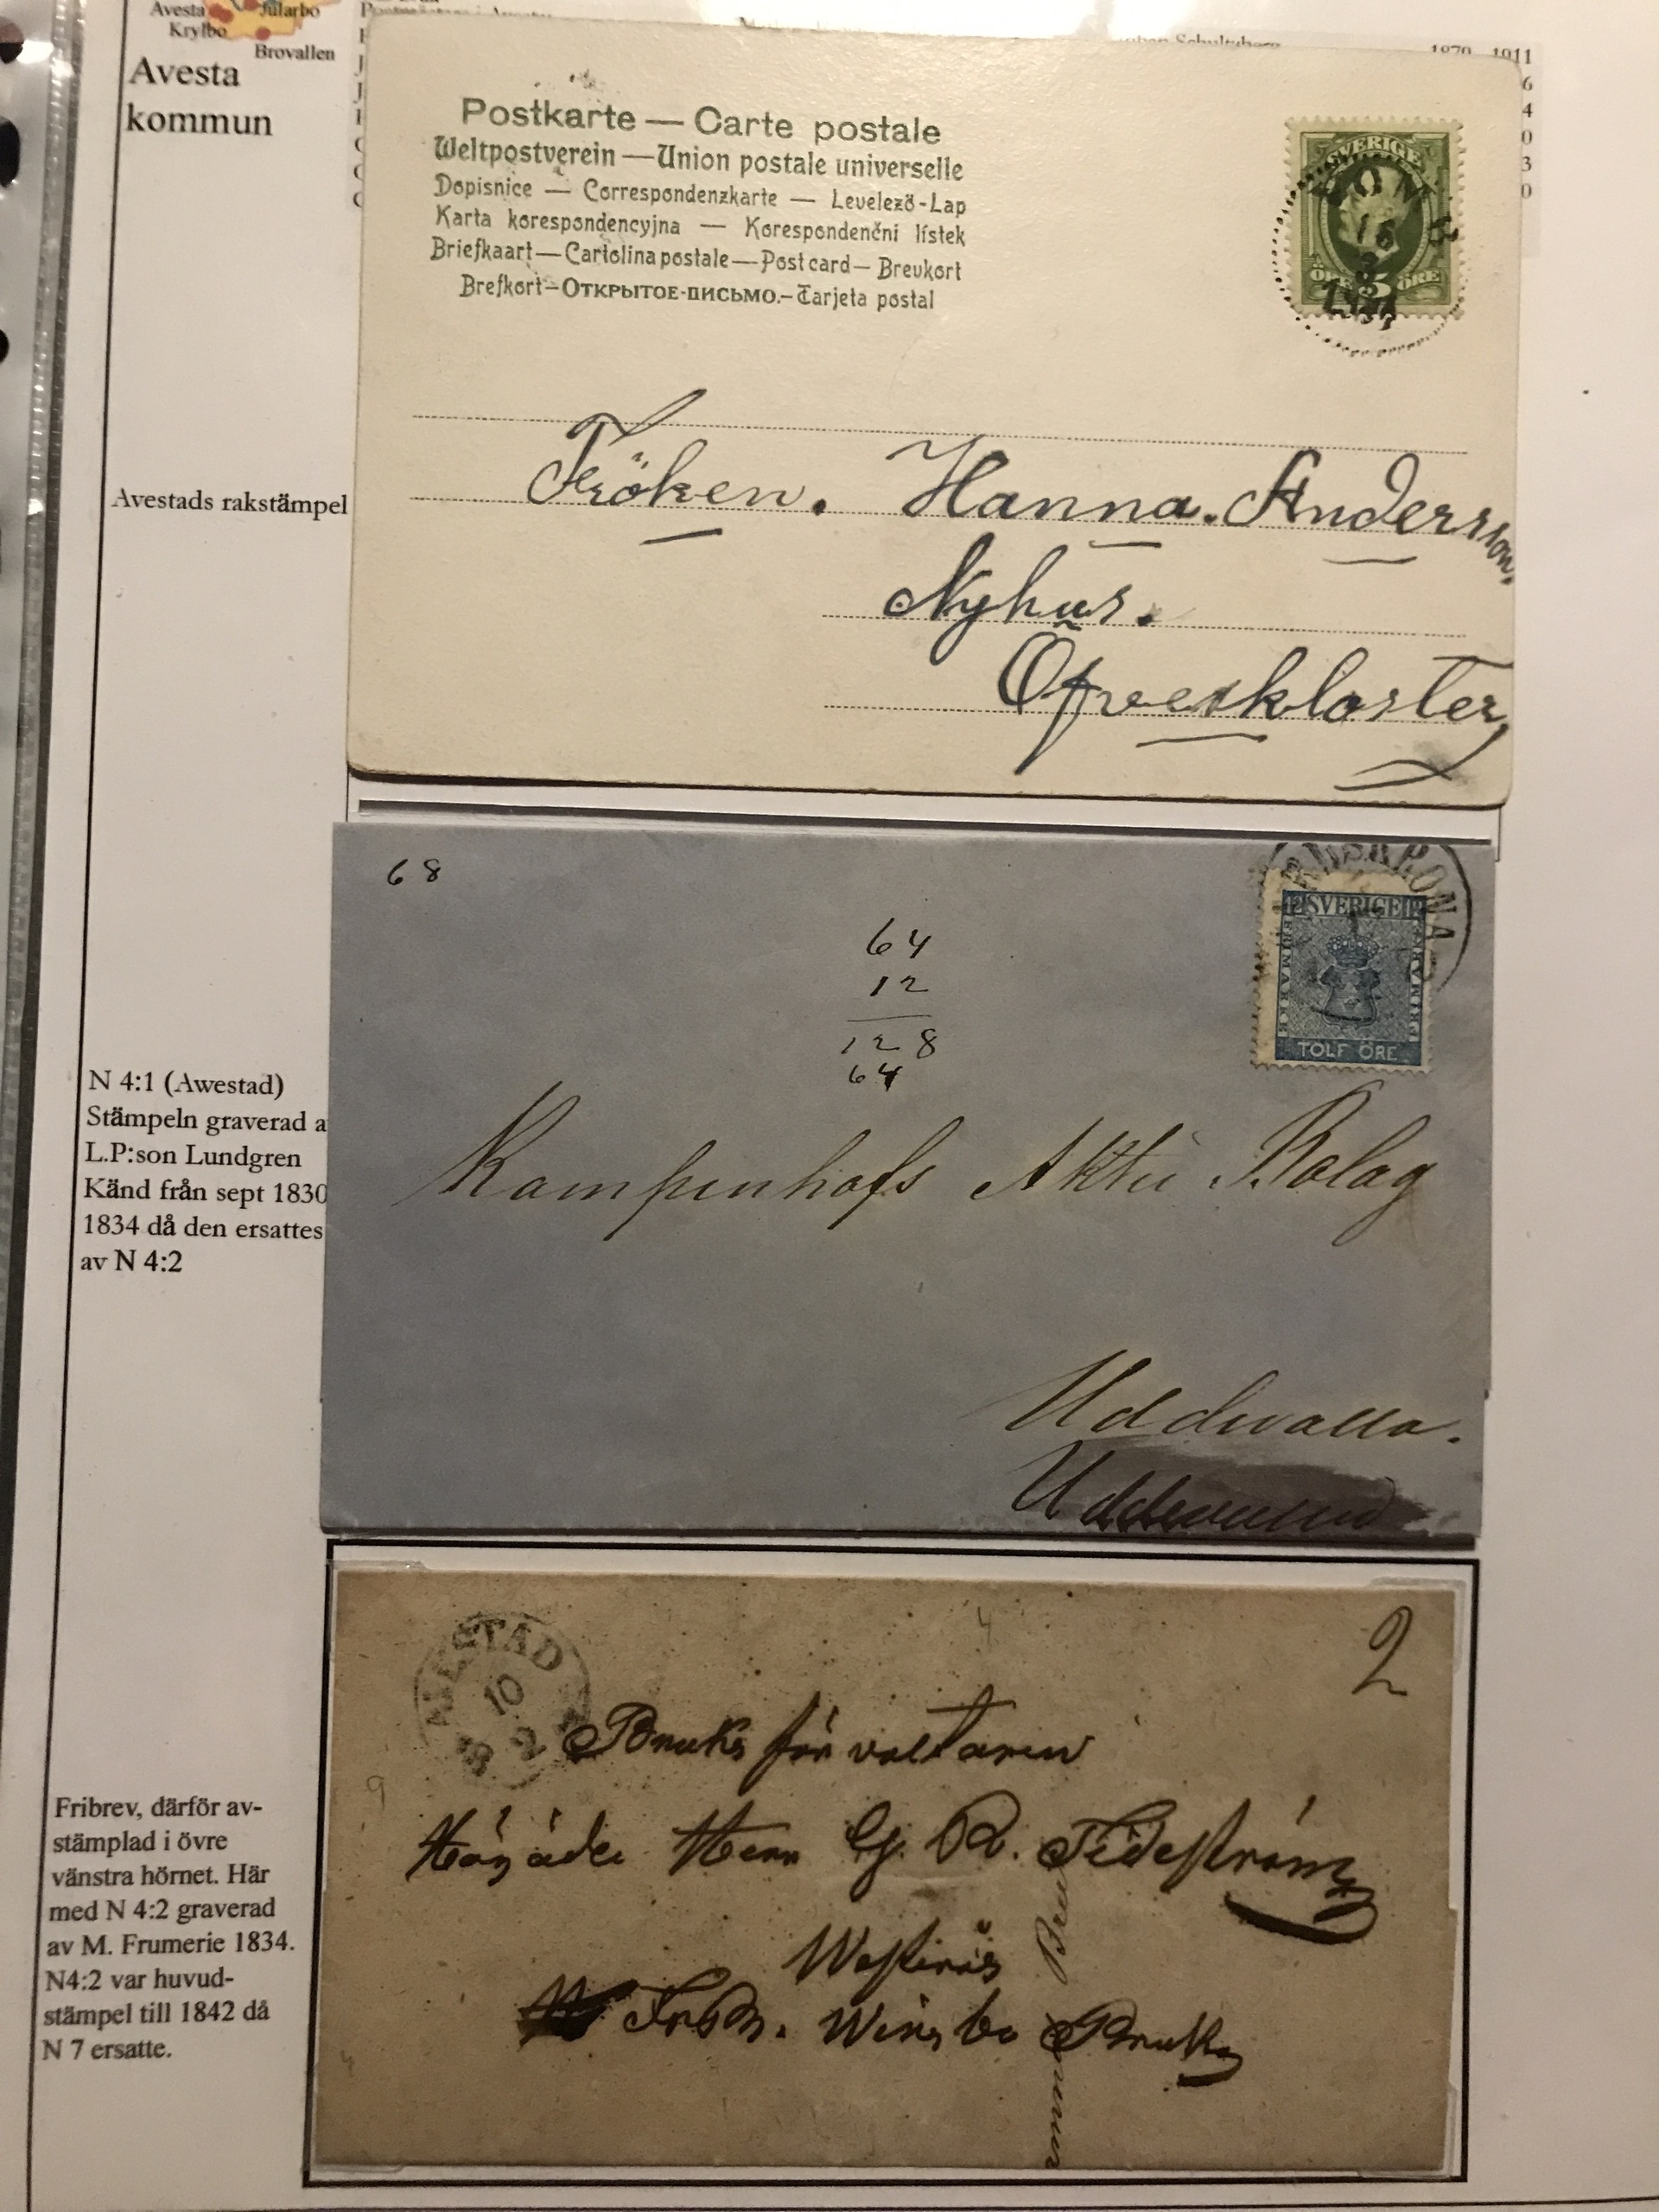 Avesta
Jularbo
Krylbo
Brovallen
Avesta
kommun
1879 1911
Postkarte — Carte postale
Weltpostverein — Union postale universelle
Dopisnice — Correspondenzkarte — Levelező-Lap
Karta korespondencyjna — Korespondenční lístek
Briefkaart — Cartolina postale — Post card — Brevkort
Brefkort — Открытое-письмо. — Tarjeta postal
SVERIGE
5
ÖRE
Fröken. Hanna. Andersson.
Nyhus.
Öfverkloster
Avestads rakstämpel
68
64
12
128
64
12 SVERIGE 12
FRIMÄRKE
FRIMÄRKE
TOLF ÖRE
Kampenhofs Aktie Bolag
Uddwalla.
N 4:1 (Awestad)
Stämpeln graverad a
L.P:son Lundgren
Känd från sept 1830
1834 då den ersattes
av N 4:2
AWESTAD
10
2
2
Bruks förvaltaren
Herr G. Tideström
Westerås
Bruk
Fribrev, därför av-
stämplad i övre
vänstra hörnet. Här
med N 4:2 graverad
av M. Frumerie 1834.
N4:2 var huvud-
stämpel till 1842 då
N 7 ersatte.